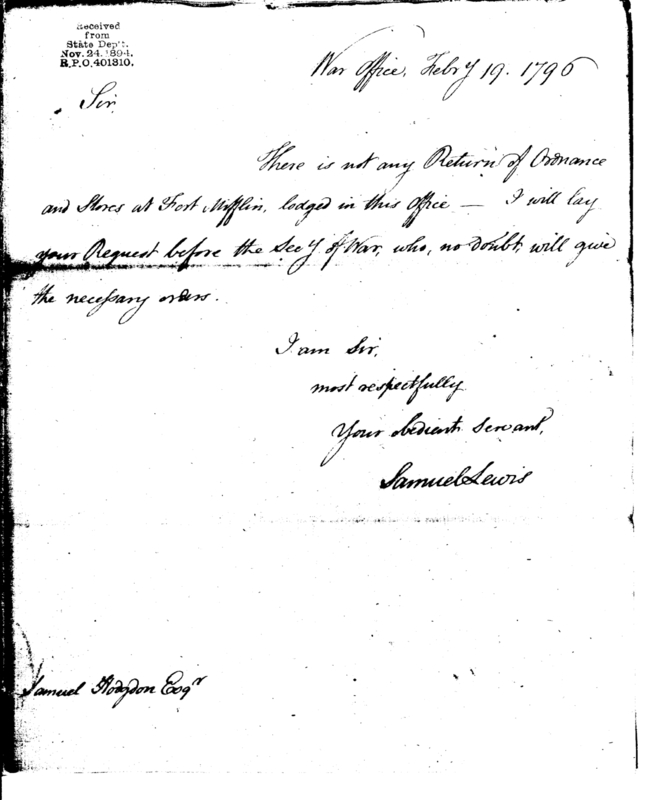 Received
from
State Dep't.
Nov. 24. 1894.
R.P.O. 401310.
War Office, Febry 19. 1796
Sir
There is not any Return of Ordnance
and Stores at Fort Mifflin, lodged in this office — I will lay
your Request before the Secy of War, who, no doubt, will give
the necessary orders.
I am Sir,
most respectfully
Your obedient Servant,
Samuel Lewis
Samuel Hodgdon Esqr